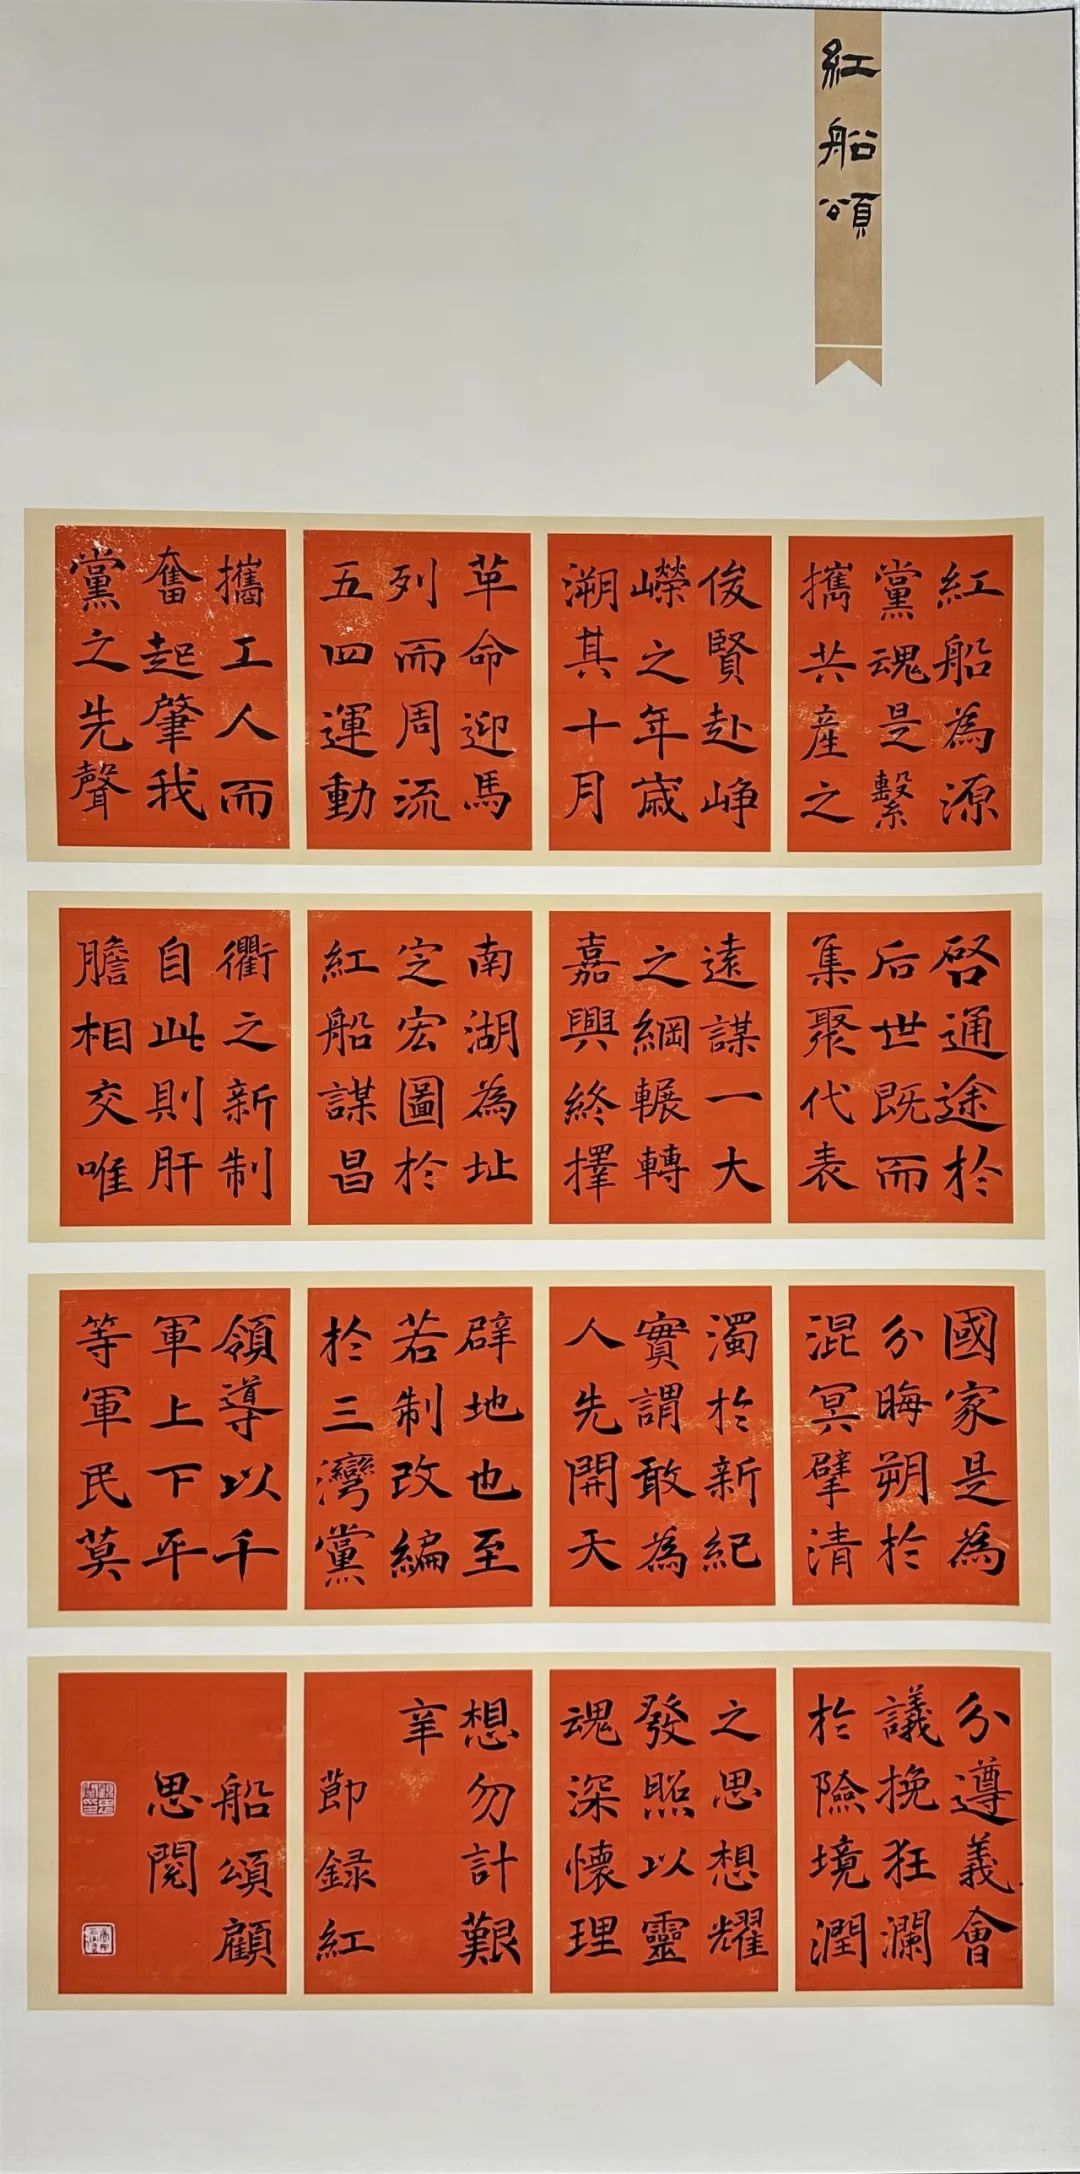 紅船頌
紅船為源
黨魂是繫
攜共產之
俊賢赴崢
嶸之年歲
溯其十月
革命迎馬
列而周流
五四運動
攜工人而
奮起肇我
黨之先聲
啓通途於
后世既而
集聚代表
遠謀一大
之綱輾轉
嘉興終擇
南湖為址
定宏圖於
紅船謀昌
衢之新制
自此則肝
膽相交唯
國家是為
分晦朔於
混冥擘清
濁於新紀
實謂敢為
人先開天
辟地也至
若制改編
於三灣黨
領導以千
軍上下平
等軍民莫
分遵義會
議挽狂瀾
於險境潤
之思想耀
發照以靈
魂深懷理
想勿計艱
辛
節録紅
船頌顧
思閱